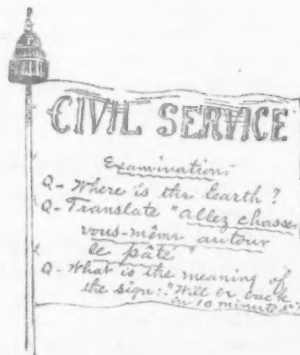 CIVIL SERVICE
Examination:
Q - Where is the Earth?
Q - Translate "allez chasser
vous-même autour
le pâte"
Q - What is the meaning of
the sign: "Will be back
in 10 minutes"?